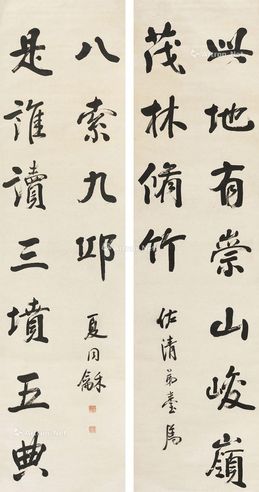 此地有崇山峻嶺
茂林脩竹
佐清弟臺属
是誰讀三墳五典
八索九邱
夏同龢